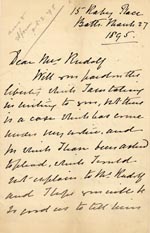 15 Raby Place
Bath March 27
1895.
Dear Mr Rudolf
Will you pardon the
liberty which I am taking
in writing to you, but there
is a case which has come
under my notice, and
in which I have been asked
to plead, which I would
explain to Mr Rudolf
and I hope you will be
so good as to tell him